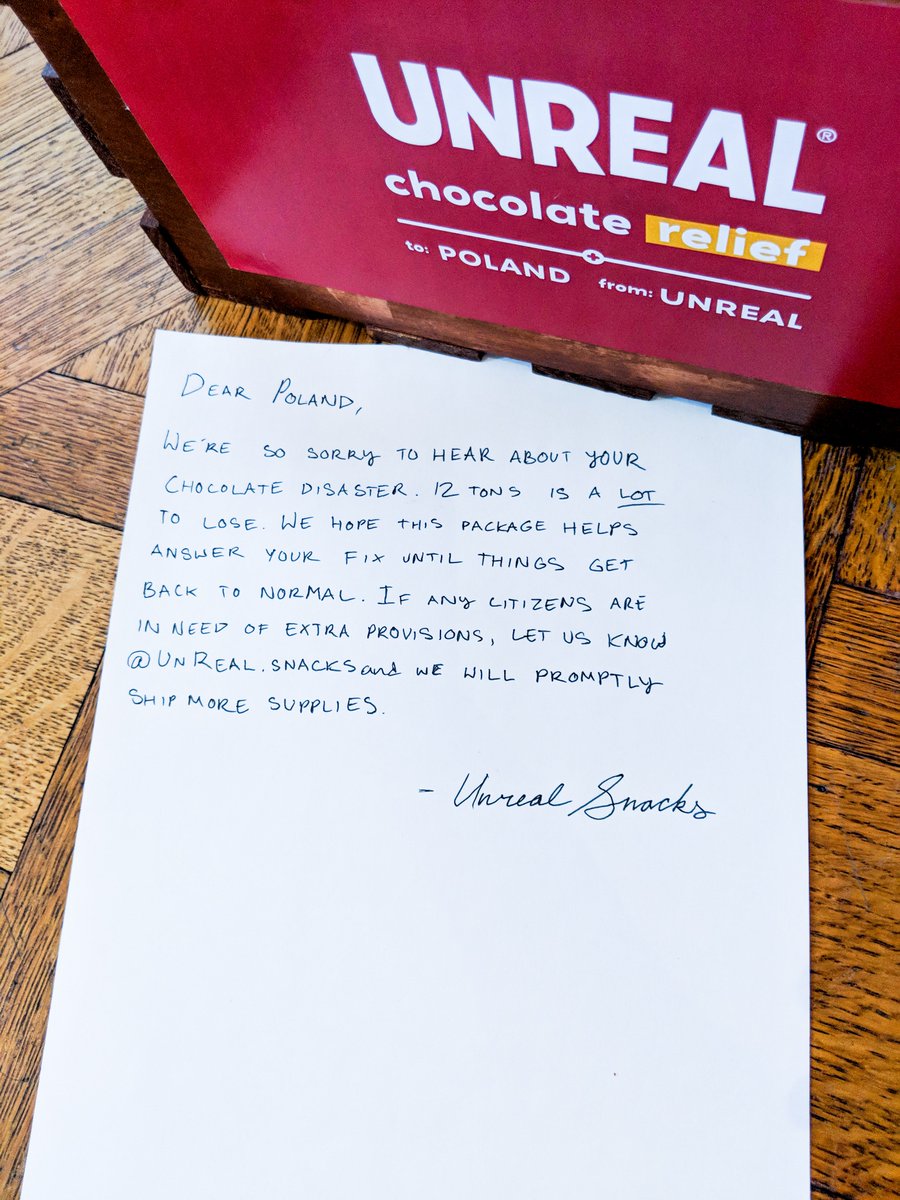 UNREAL®
chocolate relief
to: POLAND
from: UNREAL
DEAR POLAND,
WE'RE SO SORRY TO HEAR ABOUT YOUR
CHOCOLATE DISASTER. 12 TONS IS A LOT
TO LOSE. WE HOPE THIS PACKAGE HELPS
ANSWER YOUR FIX UNTIL THINGS GET
BACK TO NORMAL. IF ANY CITIZENS ARE
IN NEED OF EXTRA PROVISIONS, LET US KNOW
@UNREAL.SNACKS and WE WILL PROMPTLY
SHIP MORE SUPPLIES.
- Unreal Snacks